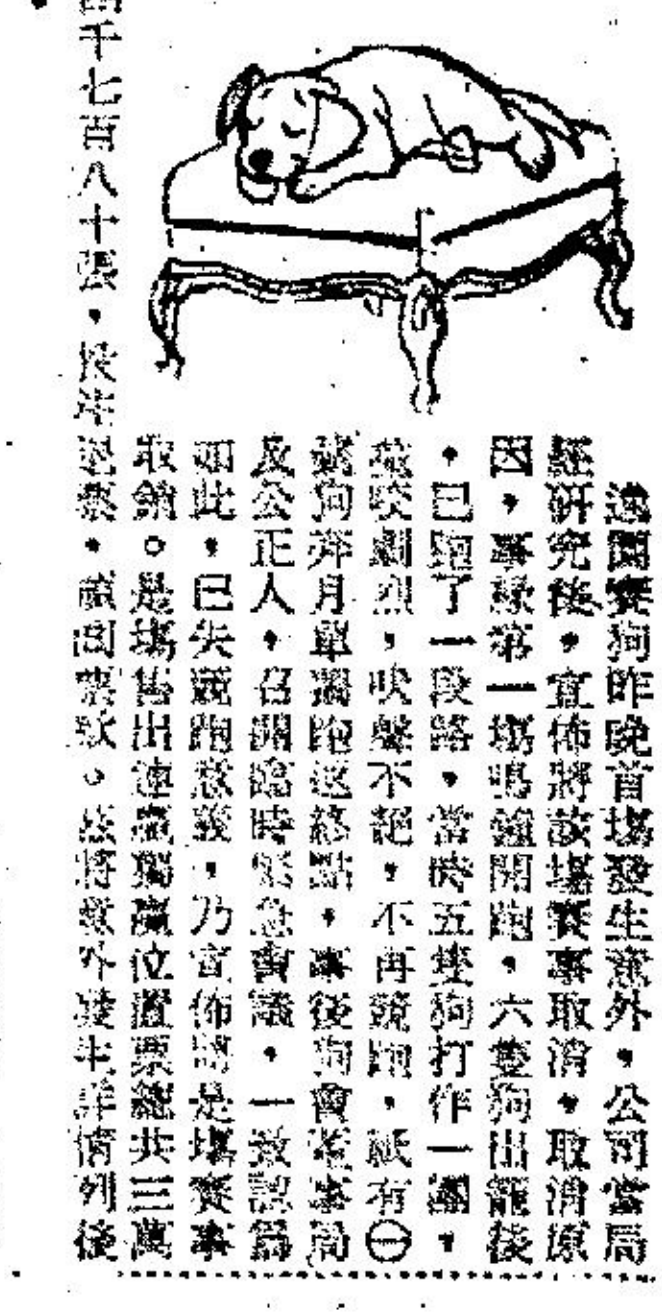 逸園賽狗昨晚首場發生意外，公司當局
經研究後，宣佈將該場賽事取消，取消原
因，事緣第一場鳴鐘開跑，六隻狗出籠後
，已跑了一段路，當時五隻狗打作一團，
咬劇烈，吠聲不絕，不再競跑，祇有㊀
號狗月單獨跑返終點，事後狗會董事局
及公正人，召開臨時緊急會議，一致認爲
如此，已失競跑意義，乃宣佈將是場賽事
取銷。是場售出連贏獨贏位置票總共三萬
四千七百八十張，退票，。茲將意外發生詳情列後